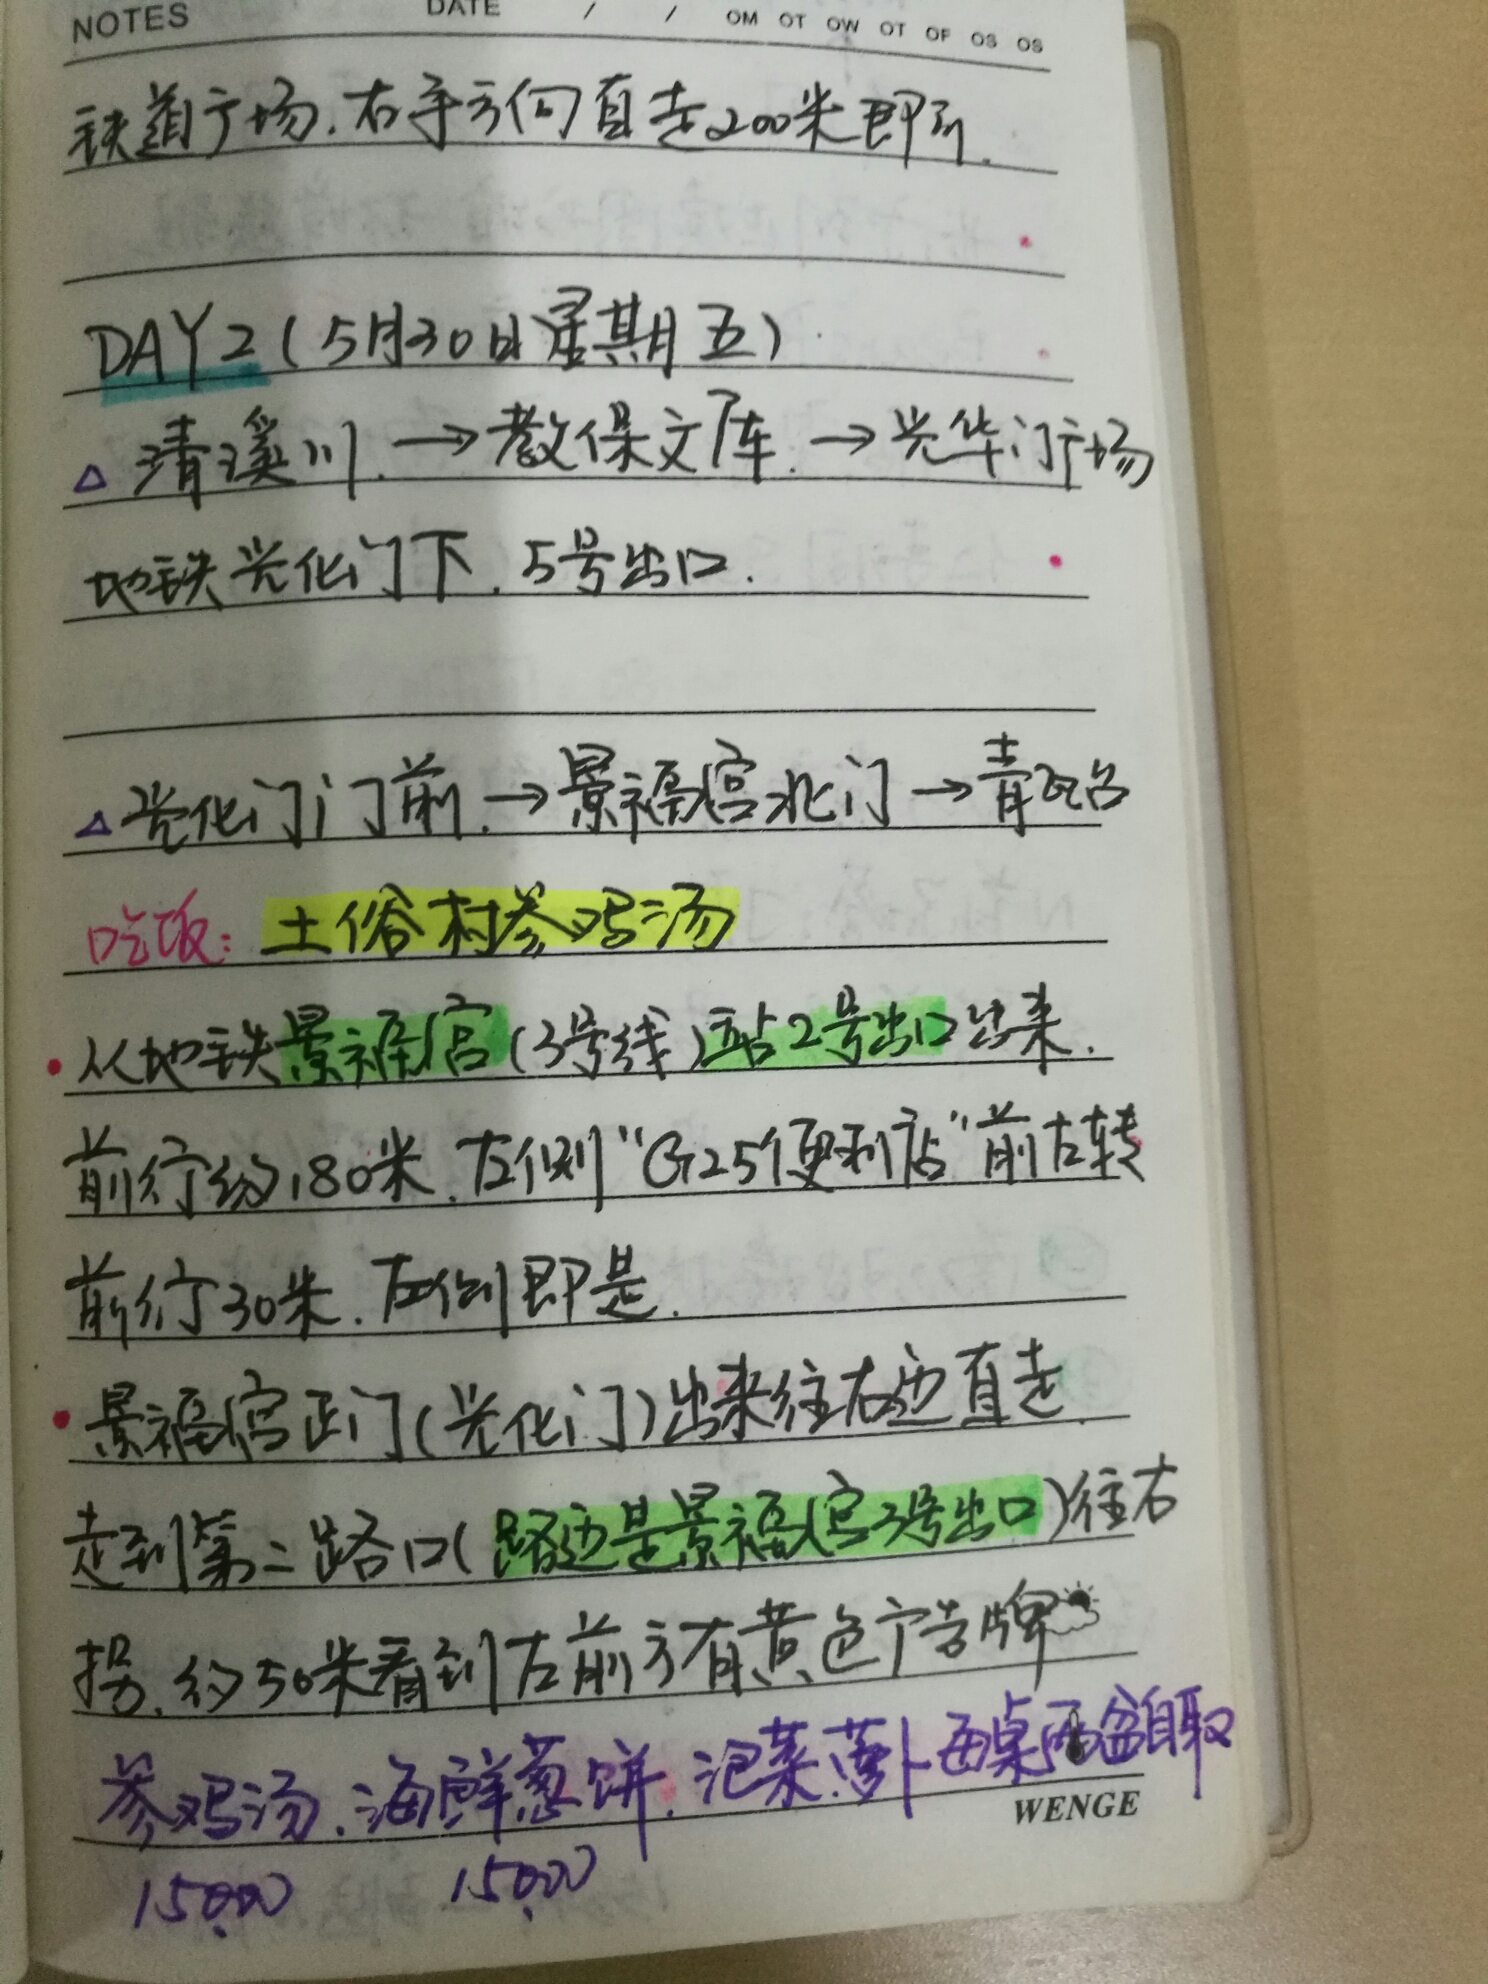 NOTES DATE / / OM OT OW OT OF OS OS
铁道广场.右手方向直走200米即到.
DAY 2 (5月30日 星期五)
△ 清溪川.→教保文库.→光华门广场
地铁光化门下.5号出口.
△光化门门前.→景福宫北门→青瓦台
吃饭: 土俗村参鸡汤
•从地铁景福宫(3号线)站2号出口出来.
前行约180米.左侧"G25便利店"前左转
前行30米.左侧即是.
•景福宫正门(光化门)出来往右边直走.
走到第二路口(路边是景福宫3号出口)往右
拐.约50米看到左前方有黄色广告牌
参鸡汤.海鲜葱饼.泡菜.萝卜每桌两盆自取
WENGE
15000 15000